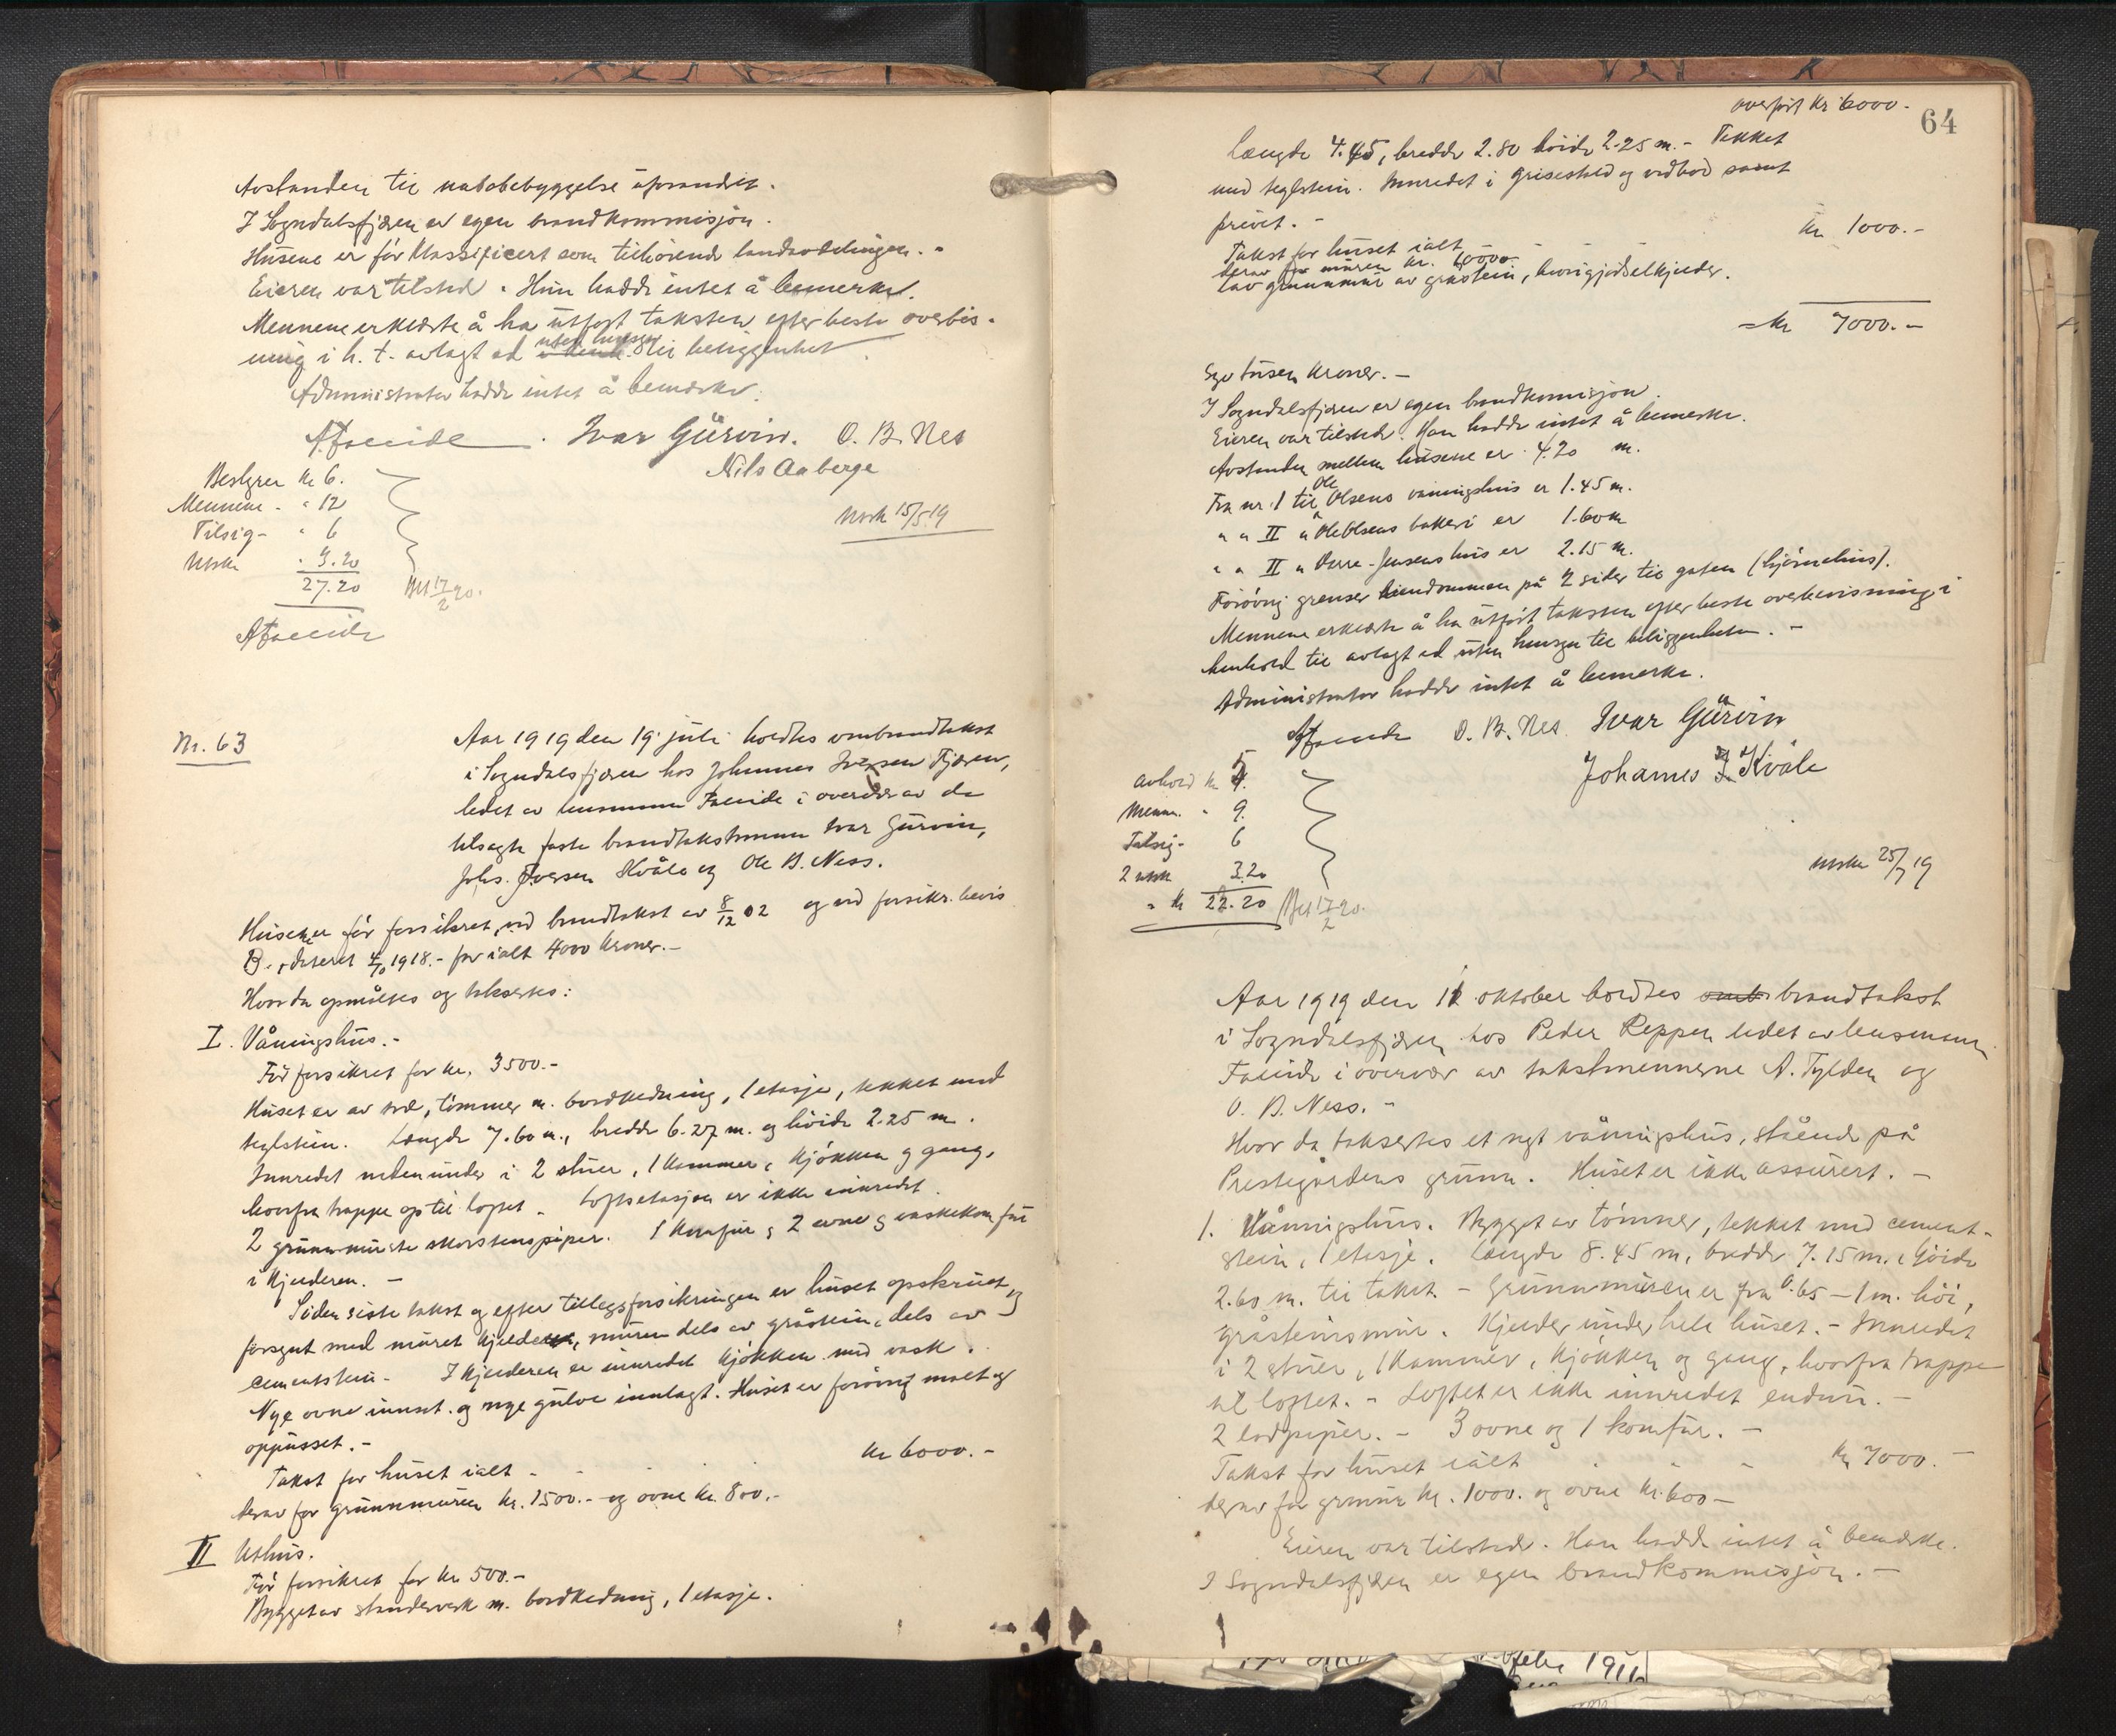 Avstanden til nabobebyggelse uforandret.
I Sogndalsfjæren er egen brandkommisjon.
Husene er før klassificert som tilhørende landavdelingen. -
Eieren var tilstede. Hun hadde intet å bemerke.
Mennene erklærte å ha utført taksten efter beste overbevis-
ning i h. t. avlagt ed uten hensyn til beliggenhet.
Administrator hadde intet å bemærke.
Ivar Gurvin. O. B. Nes
Nils Aaberge
Bestyrer kr 6.
Mennene - " 12
Tilsig - " 6
Utskr. " 3.20
27.20
Bet 17/2 20.
Utskr 15/5 19
Nr. 63
Aar 1919 den 19 juli holdtes ombrandtakst
i Sogndalsfjæren hos Johannes Iversen Fjæren,
ledet av lensmann i overvær av de
tilsagte faste brandtakstmenn Ivar Gurvin,
Johs. Iversen Kvåle og Ole B. Ness.
Husene er før forsikret ved brandtakst av 8/12 02 og ved forsikr. bevis
B. datert 1918. - for ialt 4000 kroner. -
Hvor da opmåltes og takseertes:
I. Våningshus. -
Før forsikret for kr. 3500. -
Huset er av træ, tømmer m. bordklædning, 1 etasje, tekket med
teglstein. Længde 7.60 m., bredde 6.27 m. og høide 2.25 m.
Innredet nedenunder i 2 stuer, 1 kammer, kjøkken og gang,
hvorfra trappe op til loftet. Loftsetasjen er ikke innredet.
2 grunnmurte skorstenspiper. 1 komfur, 2 ovne og vaskekomfur
i kjelderen. -
Siden siste takst og efter tillegsforsikringen er huset opskruet og
forsynt med muret kjelder, muren dels av gråstein, dels av
cementstein - I kjelderen er innredet kjøkken med vask.
Nye ovne innsat og nye gulve innlagt. Huset er forøvrig malet og
oppusset. -
Takst for huset ialt - - - kr 6000. -
derav for grunnmuren kr. 1500. - og ovne kr. 800. -
II Uthus.
Før forsikret for kr 500. -
Bygget av stenderverk m. bordkledning, 1 etasje.
overført kr 6000. -
64
Længde 4.45, bredde 2.80 høide 2.25 m. - Tekket
med teglstein. Innredet i grisestald og vedbod samt
privet. -
Takst for huset ialt kr 1000. -
derav for muren kr.
Lav grunnmur av gråstein, hvori gjødselkjelder.
= kr 7000. -
Syv tusen kroner. -
I Sogndalsfjæren er egen brandkommisjon.
Eieren var tilstede. Han hadde intet å bemerke.
Avstanden mellem husene er 4.20 m.
Fra nr. I til Ole Olsens våningshus er 1.45 m.
" " II " Ole Olsens bakeri er 1.60 m
" " II " Jensens hus er 2.15 m.
Forøvrig grenser eiendommen på 2 sider til gaten (hjørnehus).
Mennene erklærte å ha utført taksten efter beste overbevisning i
henhold til avlagt ed uten hensyn til beliggenheten. -
Administrator hadde intet å bemerke.
O. B. Nes. Ivar Gurvin
Johannes I. Kvåle
Avhold kr 5.
Menn. " 9.
Tilsig - 6
2 utskr 3.20
= kr 22.20
Bet 17/2 20.
Utskr 25/7 19
Aar 1919 den 11 oktober holdtes brandtakst
i Sogndalsfjæren hos Peder Reppen ledet av lensmann
i overvær av takstmennerne A. Tylden og
O. B. Ness. -
Hvor da takseertes et nyt våningshus, stående på
Prestegårdens grunn. Huset er ikke assurert. -
1. Våningshus. Bygget av tømmer, tekket med cement-
stein, 1 etasje. Længde 8.45 m, bredde 7.15 m., høide
2.60 m. til taket - Grunnmuren er fra 0.65 - 1 m. høi,
gråsteinsmur. Kjelder under hele huset. - Innredet
i 2 stuer, 1 kammer, kjøkken og gang, hvorfra trappe
til loftet. - Loftet er ikke innredet endnu. -
2 lodpiper. - 3 ovne og 1 komfur. -
Takst for huset ialt - - - kr 7000. -
derav for grmur kr. 1000. og ovne kr. 600 -
Eieren var tilstede. Han hadde intet å bemærke.
I Sogndalsfjæren er egen brandkommisjon. -